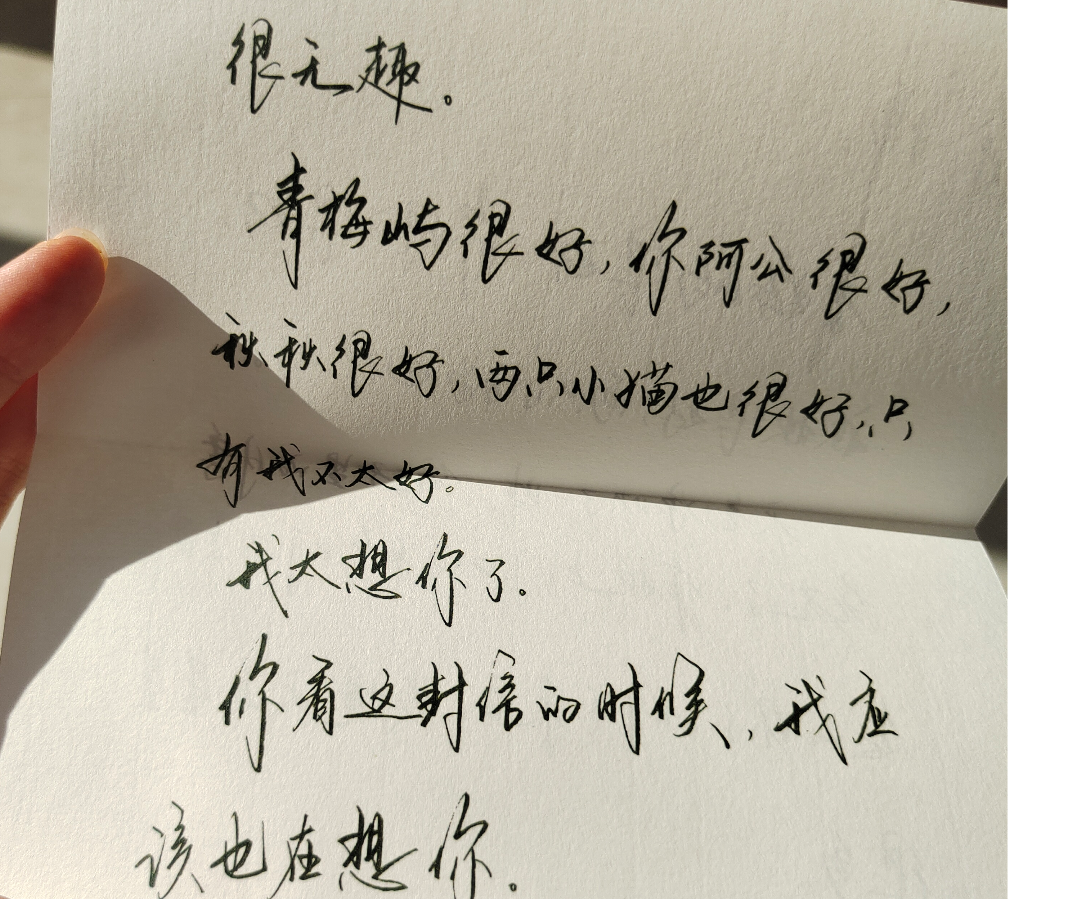 很无趣。
青梅屿很好，你阿公很好，
秋秋很好，两只小猫也很好，只
有我不太好。
我太想你了。
你看这封信的时候，我应
该也在想你。